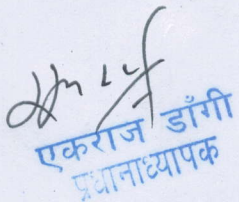 एकराज डाँगी
प्रधानाध्यापक